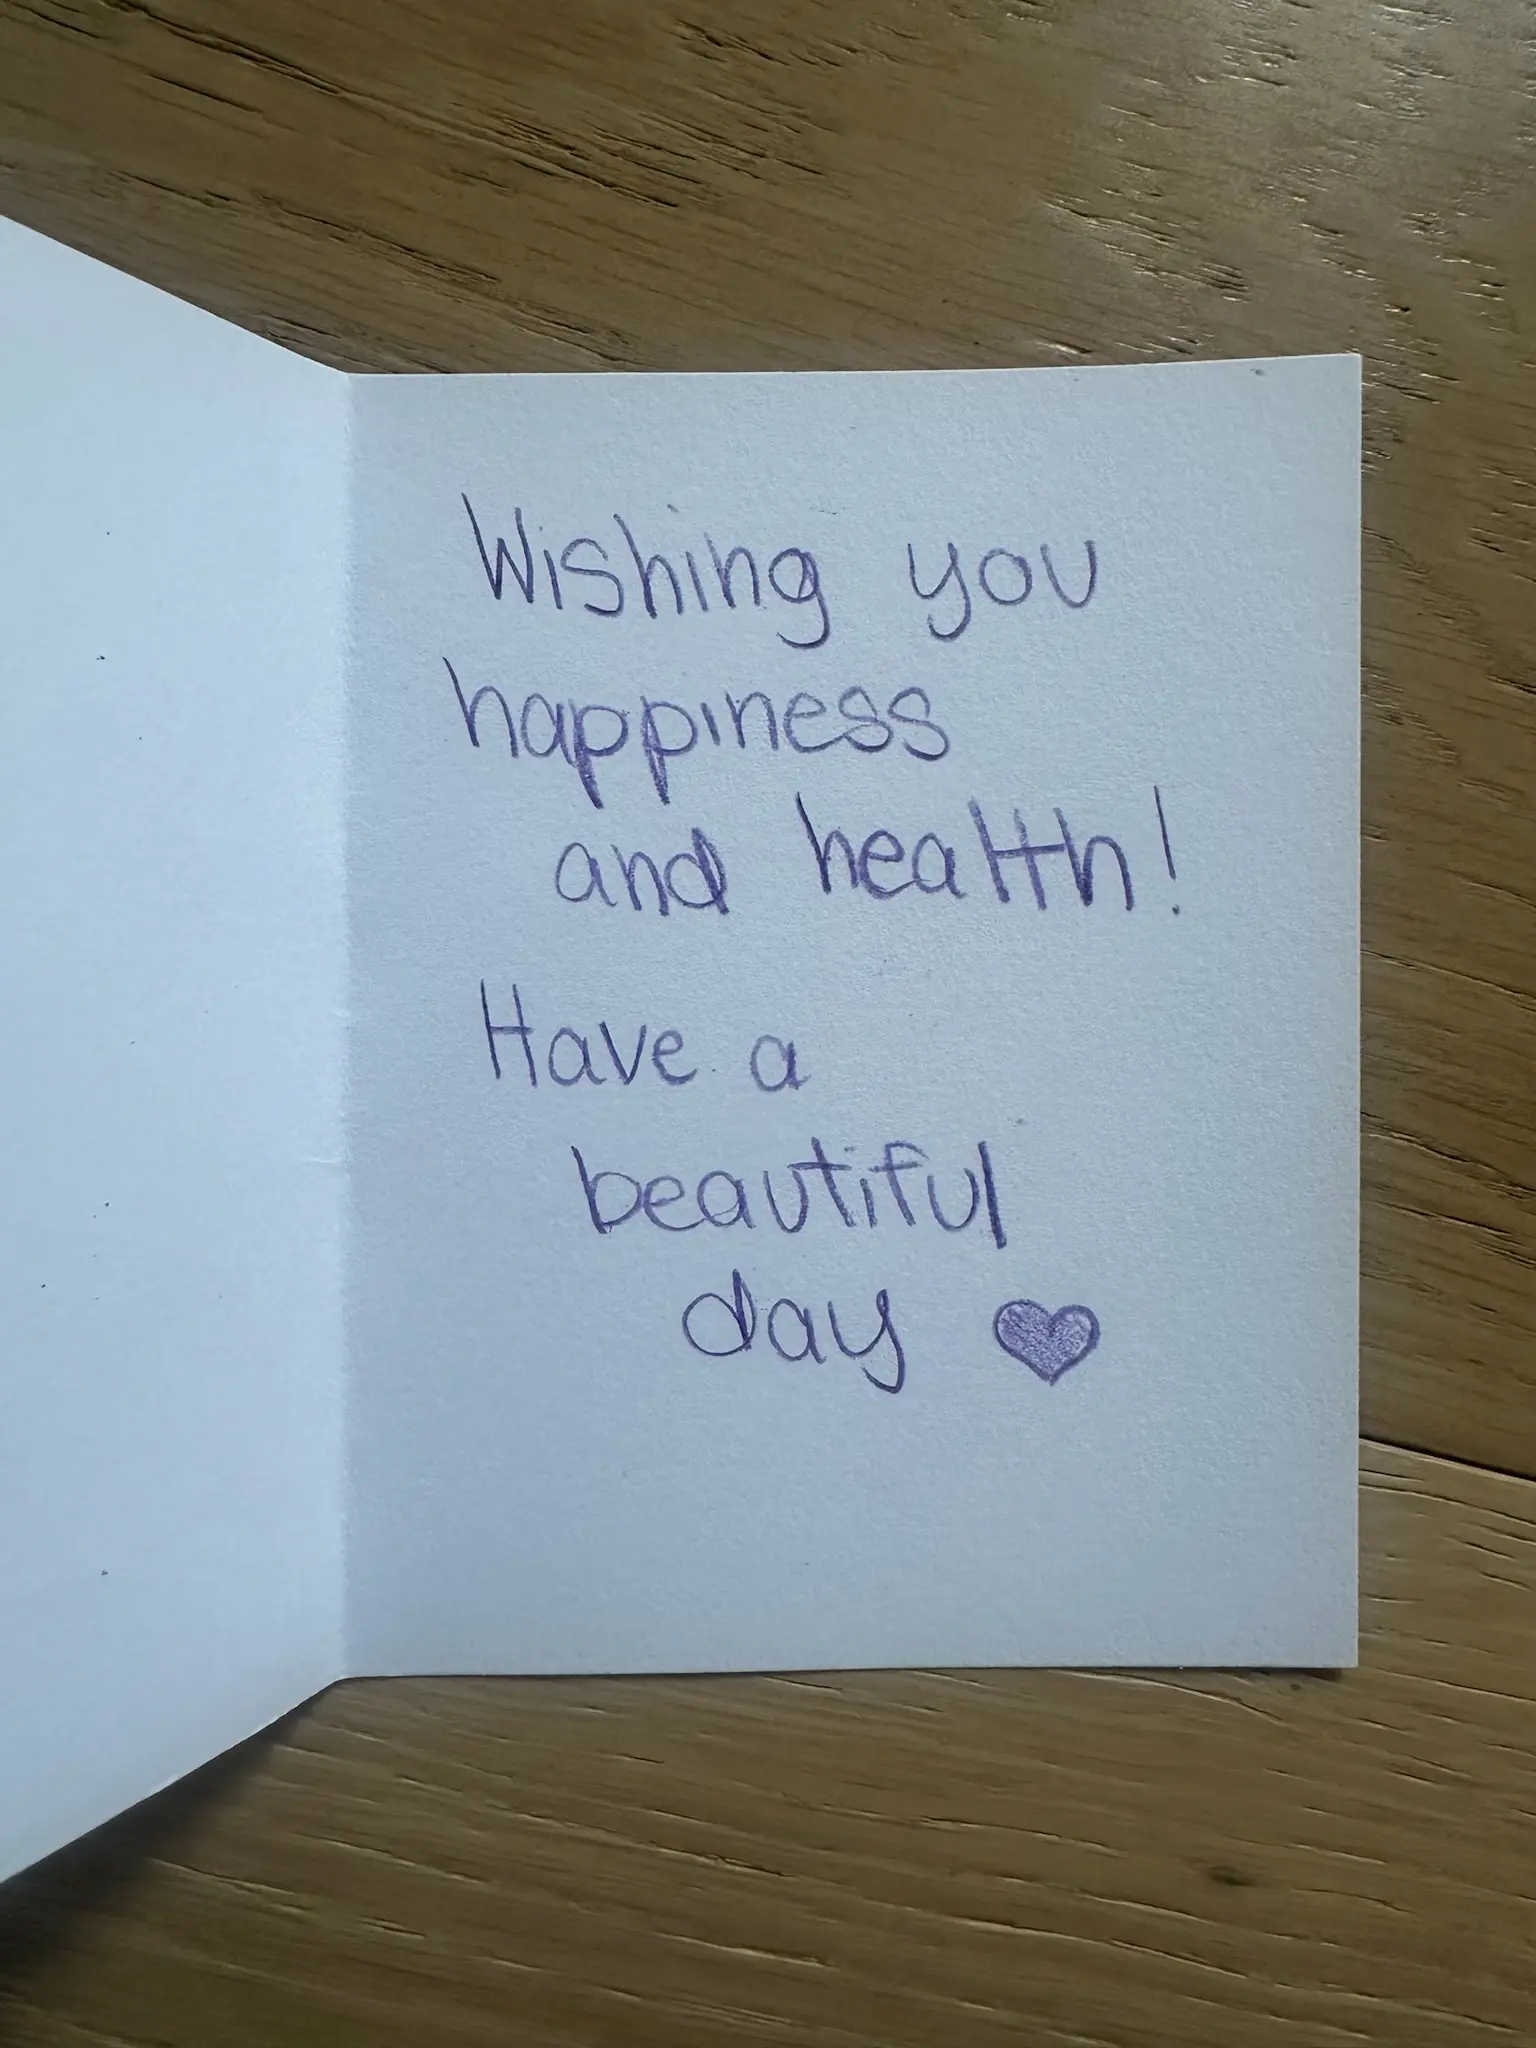 Wishing you
happiness
and health!
Have a
beautiful
day ♥